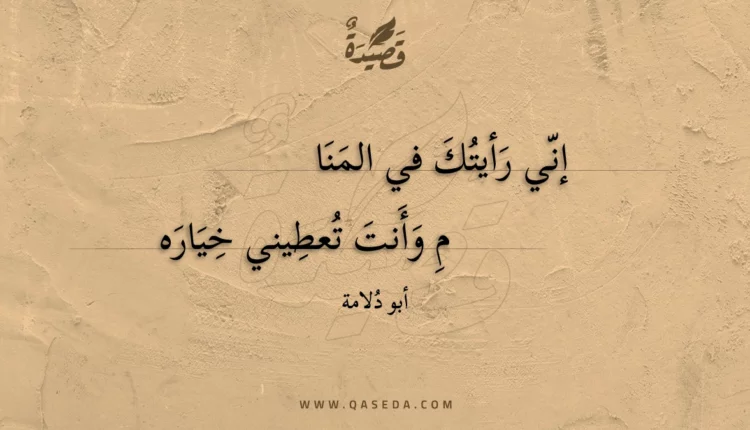 قَصِيْدَةٌ
إنّي رَأيتُكَ في المَنَا
مِ وَأَنتَ تُعطِيني خِيَارَه
أبو دُلامة
WWW.QASEDA.COM